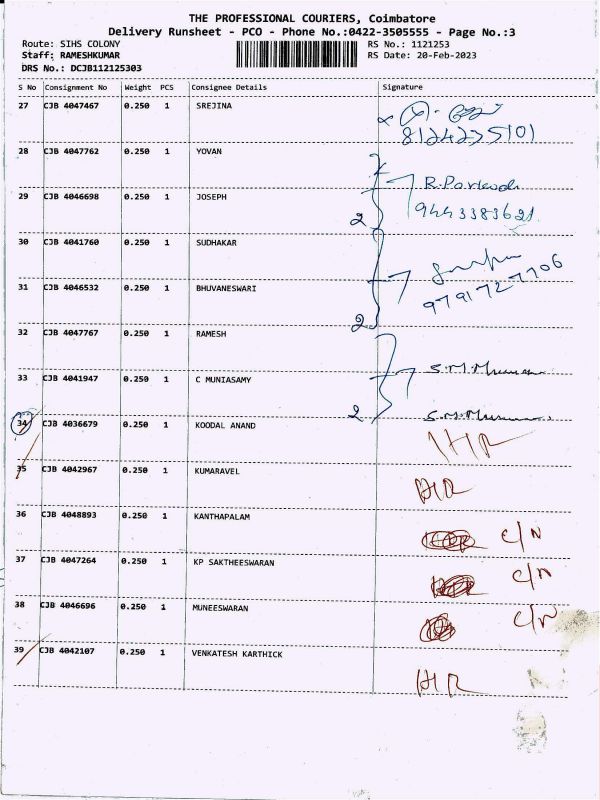 THE PROFESSIONAL COURIERS, Coimbatore
Delivery Runsheet - PCO - Phone No.:0422-3505555 - Page No.:3
Route: SIHS COLONY RS No.: 1121253
Staff: RAMESHKUMAR RS Date: 20-Feb-2023
DRS No.: DCJB112125303
S No Consignment No Weight PCS Consignee Details Signature
27 CJB 4047467 0.250 1 SREJINA
8124235101
28 CJB 4047762 0.250 1 YOVAN
R.
29 CJB 4046698 0.250 1 JOSEPH 9443383621
2
30 CJB 4041760 0.250 1 SUDHAKAR
31 CJB 4046532 0.250 1 BHUVANESWARI 9791727706
2
32 CJB 4047767 0.250 1 RAMESH
S.M.
33 CJB 4041947 0.250 1 C MUNIASAMY
2 S.M.
34 CJB 4036679 0.250 1 KOODAL ANAND
35 CJB 4042967 0.250 1 KUMARAVEL
36 CJB 4048893 0.250 1 KANTHAPALAM C/N
37 CJB 4047264 0.250 1 KP SAKTHEESWARAN C/N
38 CJB 4046696 0.250 1 MUNEESWARAN C/N
39 CJB 4042107 0.250 1 VENKATESH KARTHICK